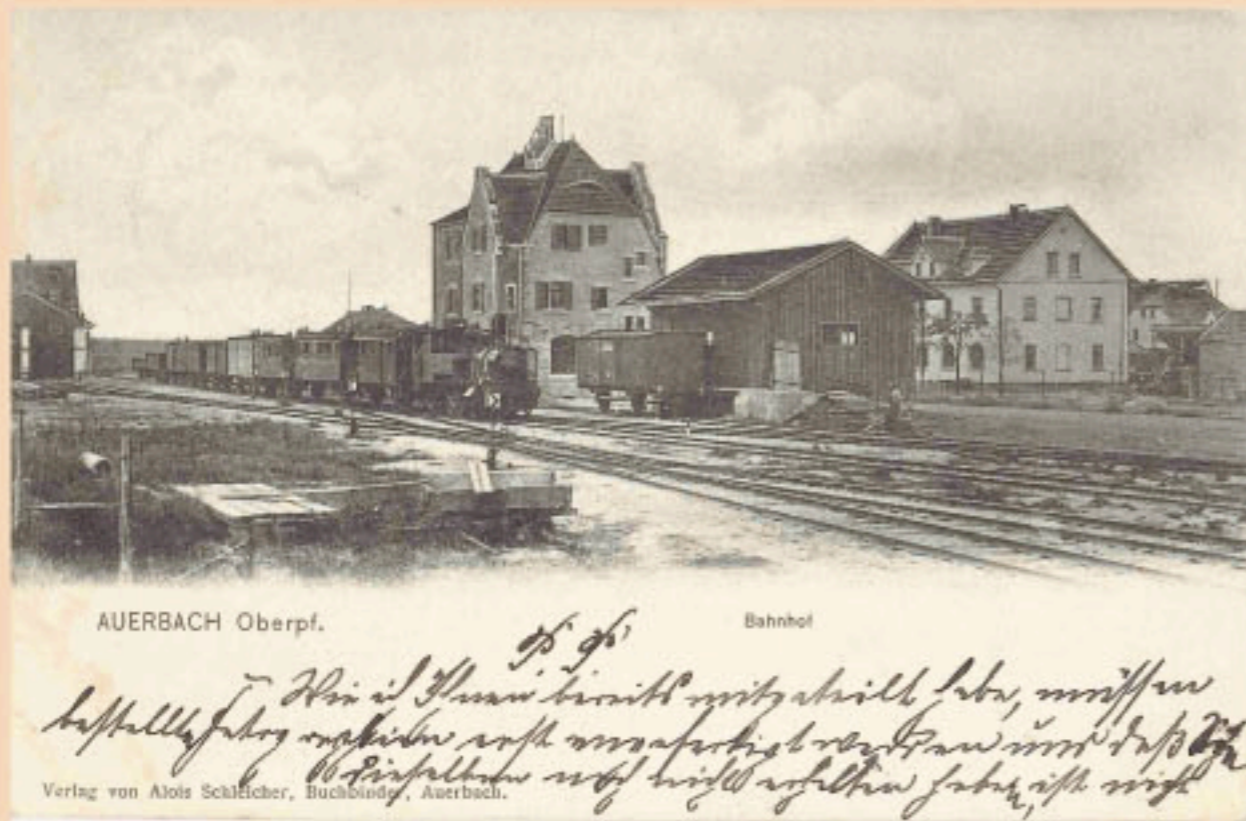 AUERBACH Oberpf.
Bahnhof
P. P.
Wie ich Ihnen bereits mitgeteilt habe, müssen
bestellte erst angefertigt werden und daß Sie
dieselben noch nicht erhalten haben, ist nicht
Verlag von Alois Schleicher, Buchbinder, Auerbach.